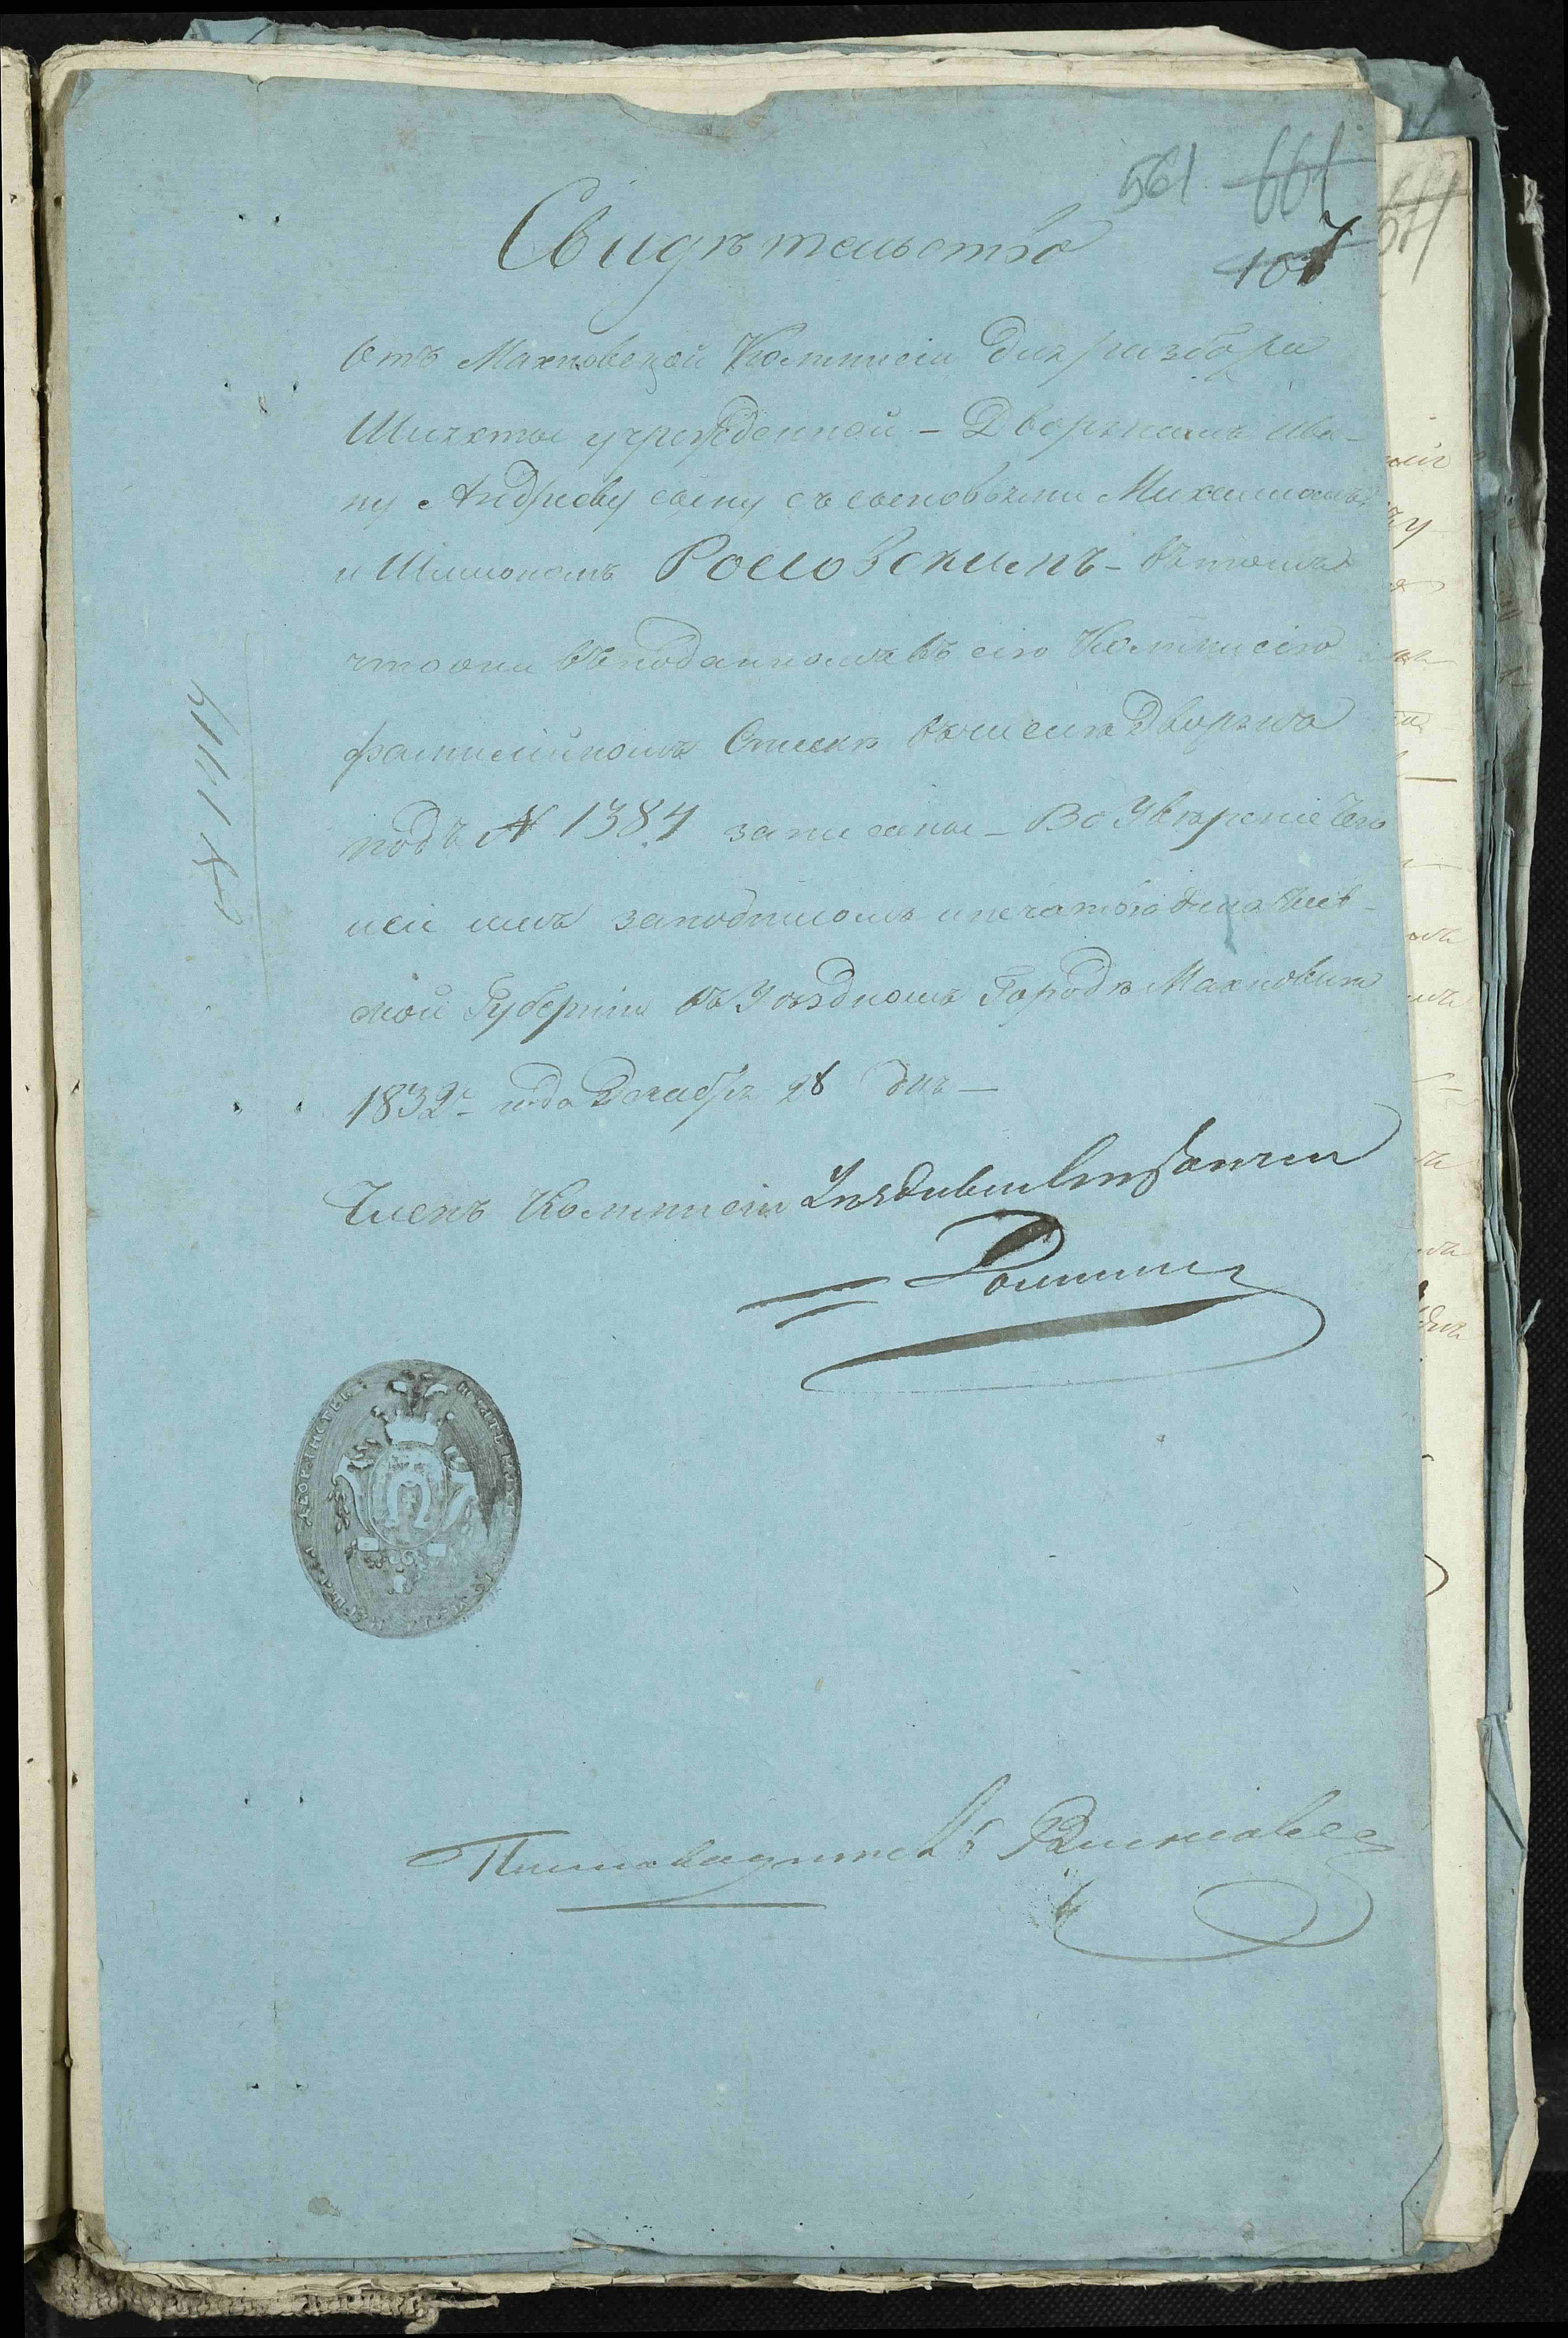 561 661
107
Свидѣтельство
Отъ Махновской Коммисіи для разбора
Шляхты учрежденной – Дворянамъ Ива-
ну Андрееву сыну съ сыновьями Михаиломъ
и Шимономъ – въ томъ
что они въ поданномъ въ сію Коммисію
фамилійномъ Спискѣ въ числѣ Дворянъ
подъ № 1384 записаны – Во Увѣреніе чего
и сей имъ за подписомъ и печатью данъ Кіев-
ской Губерніи въ Уѣздномъ Городѣ Махновкѣ
1832го года Декабря 28 дня –
Членъ Коммисіи
Письмоводитель